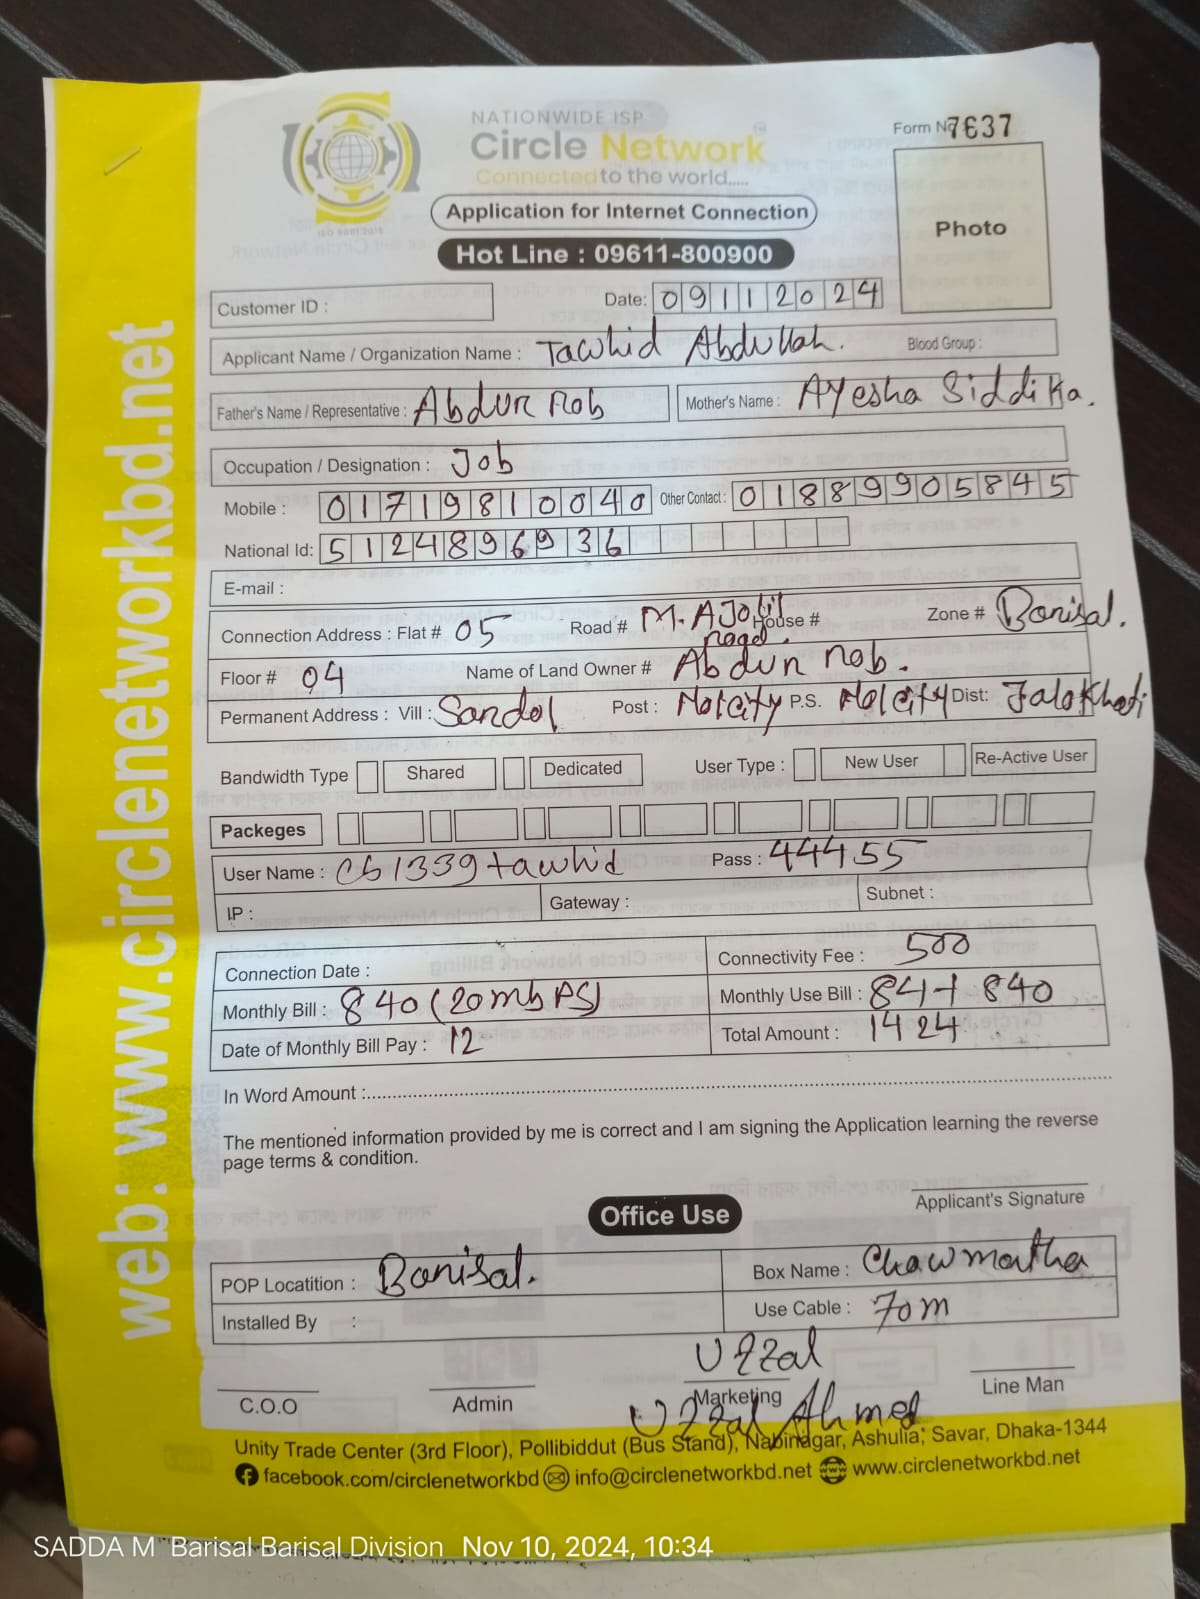 NATIONWIDE ISP
Circle Network
Connected to the world.....
ISO 9001:2015
Form No 7637
Photo
Application for Internet Connection
Hot Line : 09611-800900
Customer ID :
Date: 09112024
Applicant Name / Organization Name : Tawhid Abdullah. Blood Group :
Father's Name / Representative : Abdur Rob Mother's Name : Ayesha Siddika.
Occupation / Designation : Job
Mobile : 01719810040 Other Contact : 01889905845
National Id: 5124896936
E-mail :
Connection Address : Flat # 05 Road # M.A Jolil road. House # Zone # Barisal.
Floor # 04 Name of Land Owner # Abdur Rob.
Permanent Address : Vill : Sandol Post : Nolcity P.S. Nolcity Dist: Jalokhati
Bandwidth Type Shared Dedicated User Type : New User Re-Active User
Packeges
User Name : cb1339tawhid Pass : 44455
IP : Gateway : Subnet :
Connection Date : Connectivity Fee : 500
Monthly Bill : 840 (20mbps) Monthly Use Bill : 84+840
Date of Monthly Bill Pay : 12 Total Amount : 1424
In Word Amount :
The mentioned information provided by me is correct and I am signing the Application learning the reverse
page terms & condition.
Applicant's Signature
Office Use
POP Locatition : Barisal. Box Name : Chawmatha
Installed By : Use Cable : 70m
Uzzal
C.O.O Admin Marketing Line Man
Uzzal Ahmed
Unity Trade Center (3rd Floor), Pollibiddut (Bus Stand), Nabinagar, Ashulia, Savar, Dhaka-1344
facebook.com/circlenetworkbd info@circlenetworkbd.net www.circlenetworkbd.net
web: www.circlenetworkbd.net
SADDA M Barisal Barisal Division Nov 10, 2024, 10:34